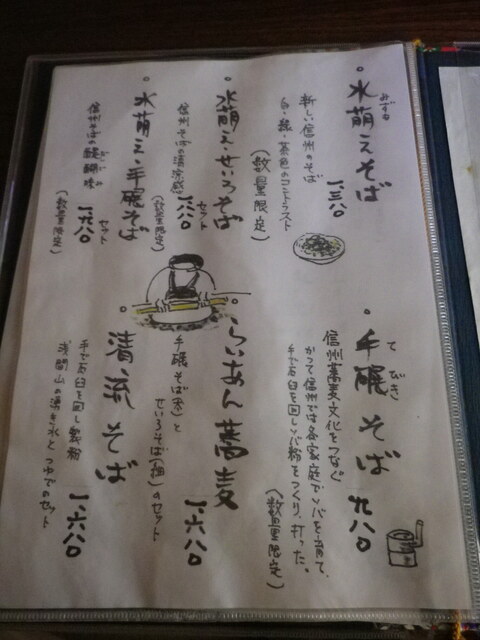 水萌えそば
新しい信州のそば
白・緑・茶色のコントラスト
一、三八〇
(数量限定)
水萌え・せいろそば
信州そばの清涼感
セット
一、六八〇
(数量限定)
水萌え・手碾そば
信州そばの醍醐味
セット
一、六八〇
(数量限定)
手碾そば
てびき
信州蕎麦文化をつなぐ
かつて信州では各家庭でソバを育て、
手で石臼を回しソバ粉をつくり、打った。
九八〇
(数量限定)
らいおん蕎麦
手碾そば(冷)と
せいろそば(粗)のセット
一、六八〇
清流そば
手で石臼を回し製粉
浅間山の湧き水とつゆでのセット
一、六八〇